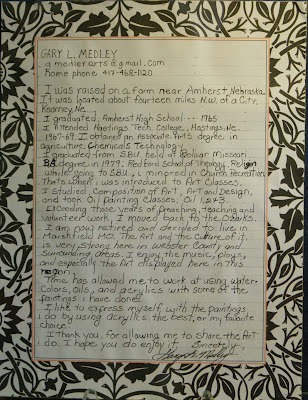 GARY L. MEDLEY
Home phone 417-468-1120
I was raised on a farm near Amherst, Nebraska.
It was located about fourteen miles N.W. of a City,
Kearney, Ne.
I graduated, Amherst High School --- 1965
I attended Hastings Tech College, Hastings, Ne.
1967-69. I obtained an associate Arts degree in
agriculture Chemicals Technology.
I graduated from S.B.U. held at Bolivar Missouri
BA degree in 1979: Redford School of Theology, Religion
while going to S.B.U., I minored in Church Recreation.
That's when I was introduced to Art Classes.
I studied Composition of Art, Art and Design,
and took Oil Painting Classes; Oil 1, 2 & 3
those years of Preaching, teaching and
volunteer work, I moved back to the Ozarks.
I am now retired and decided to live in
Marshfield MO. The Art and the Culture of it
is very strong here in Webster County and
Surrounding areas. I enjoy the music, plays,
and especially the Art displayed here in this
region.
Time has allowed me to work at using water
Colors, Oils, and acrylics with some of the
paintings I have done.
I like to express myself with the paintings
I do by using acrylics the best, or my favorite
choice.
I thank you, for allowing me to share the Art
I do. I hope you do enjoy it.